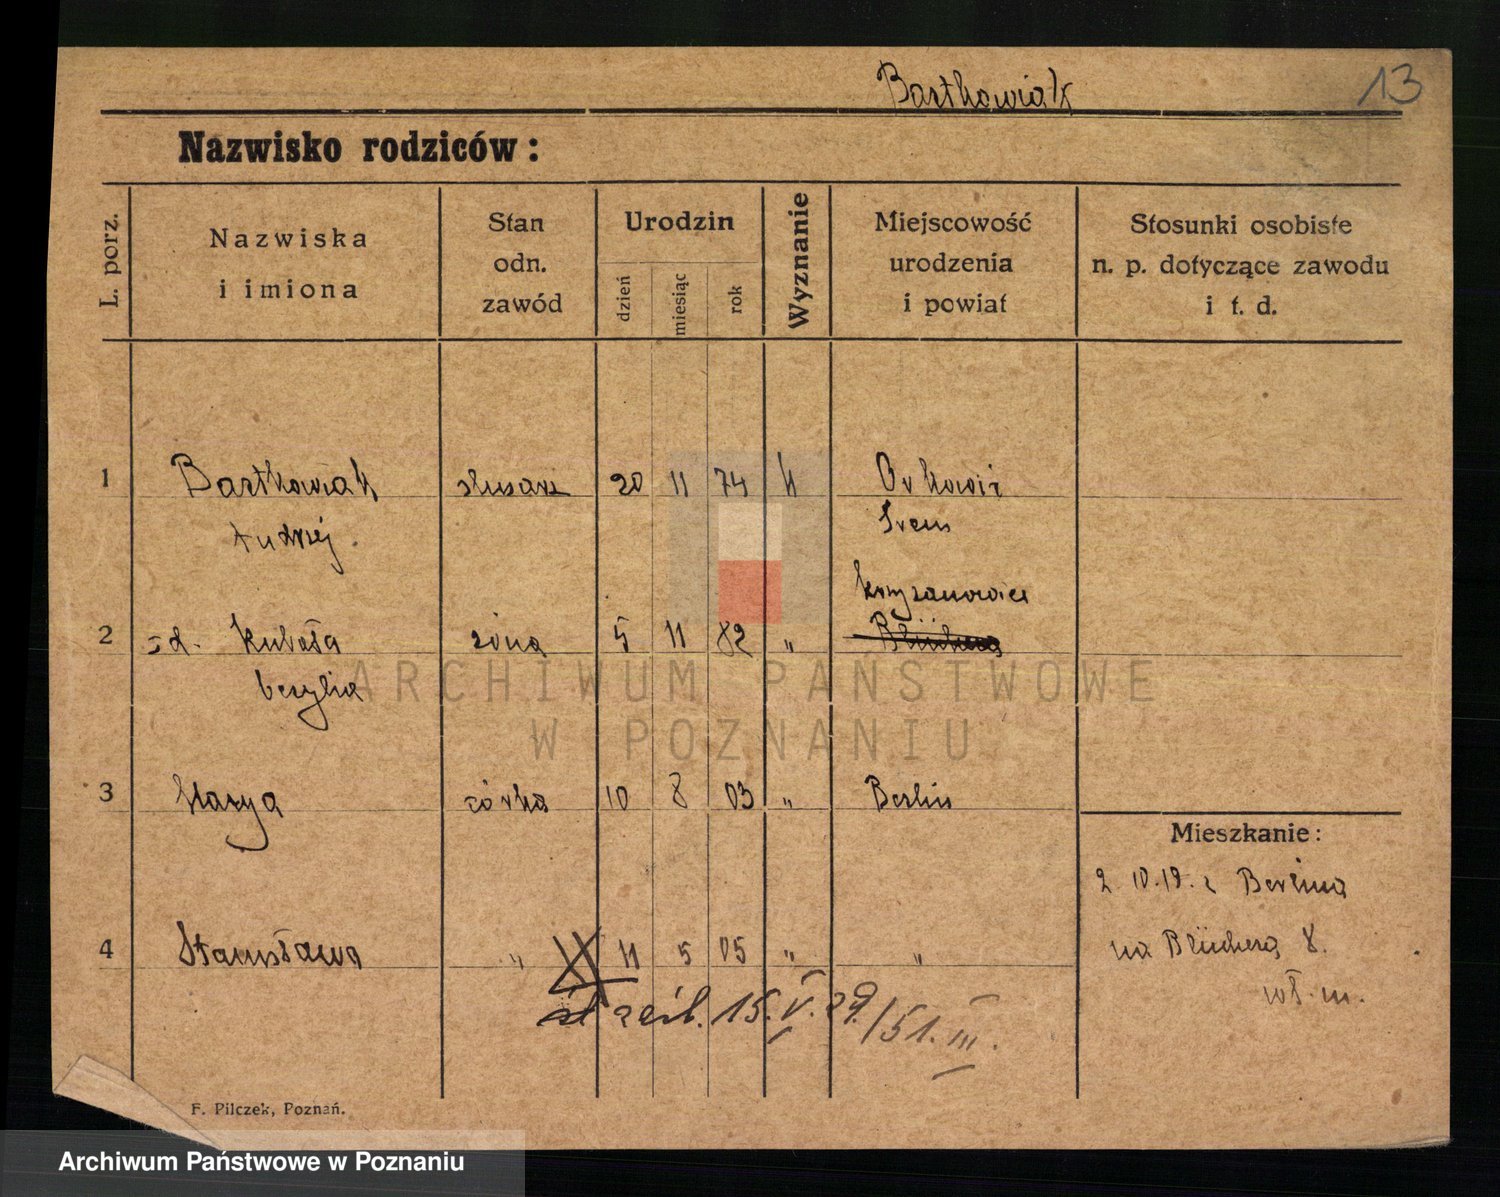 Bartkowiak 13
Nazwisko rodziców:
L. porz.
Nazwiska
i imiona
Stan
odn.
zawód
Urodzin
dzień
miesiąc
rok
Wyznanie
Miejscowość
urodzenia
i powiat
Stosunki osobiste
n. p. dotyczące zawodu
i t. d.
1 Bartkowiak ślusarz 20 11 74 k
Andrzej. Śrem
Krzyzanowice
2 zd. Kubala żona 5 11 82 "
3 Marya córka 10 8 03 " Berlin
Mieszkanie:
2. 10. 19. z Berlina
4 Stanisława " 11 5 05 " "
na Blüchera 8.
wł. m.
15. V. 29./51. III.
F. Pilczek, Poznań.
ARCHIWUM PAŃSTWOWE
W POZNANIU
Archiwum Państwowe w Poznaniu